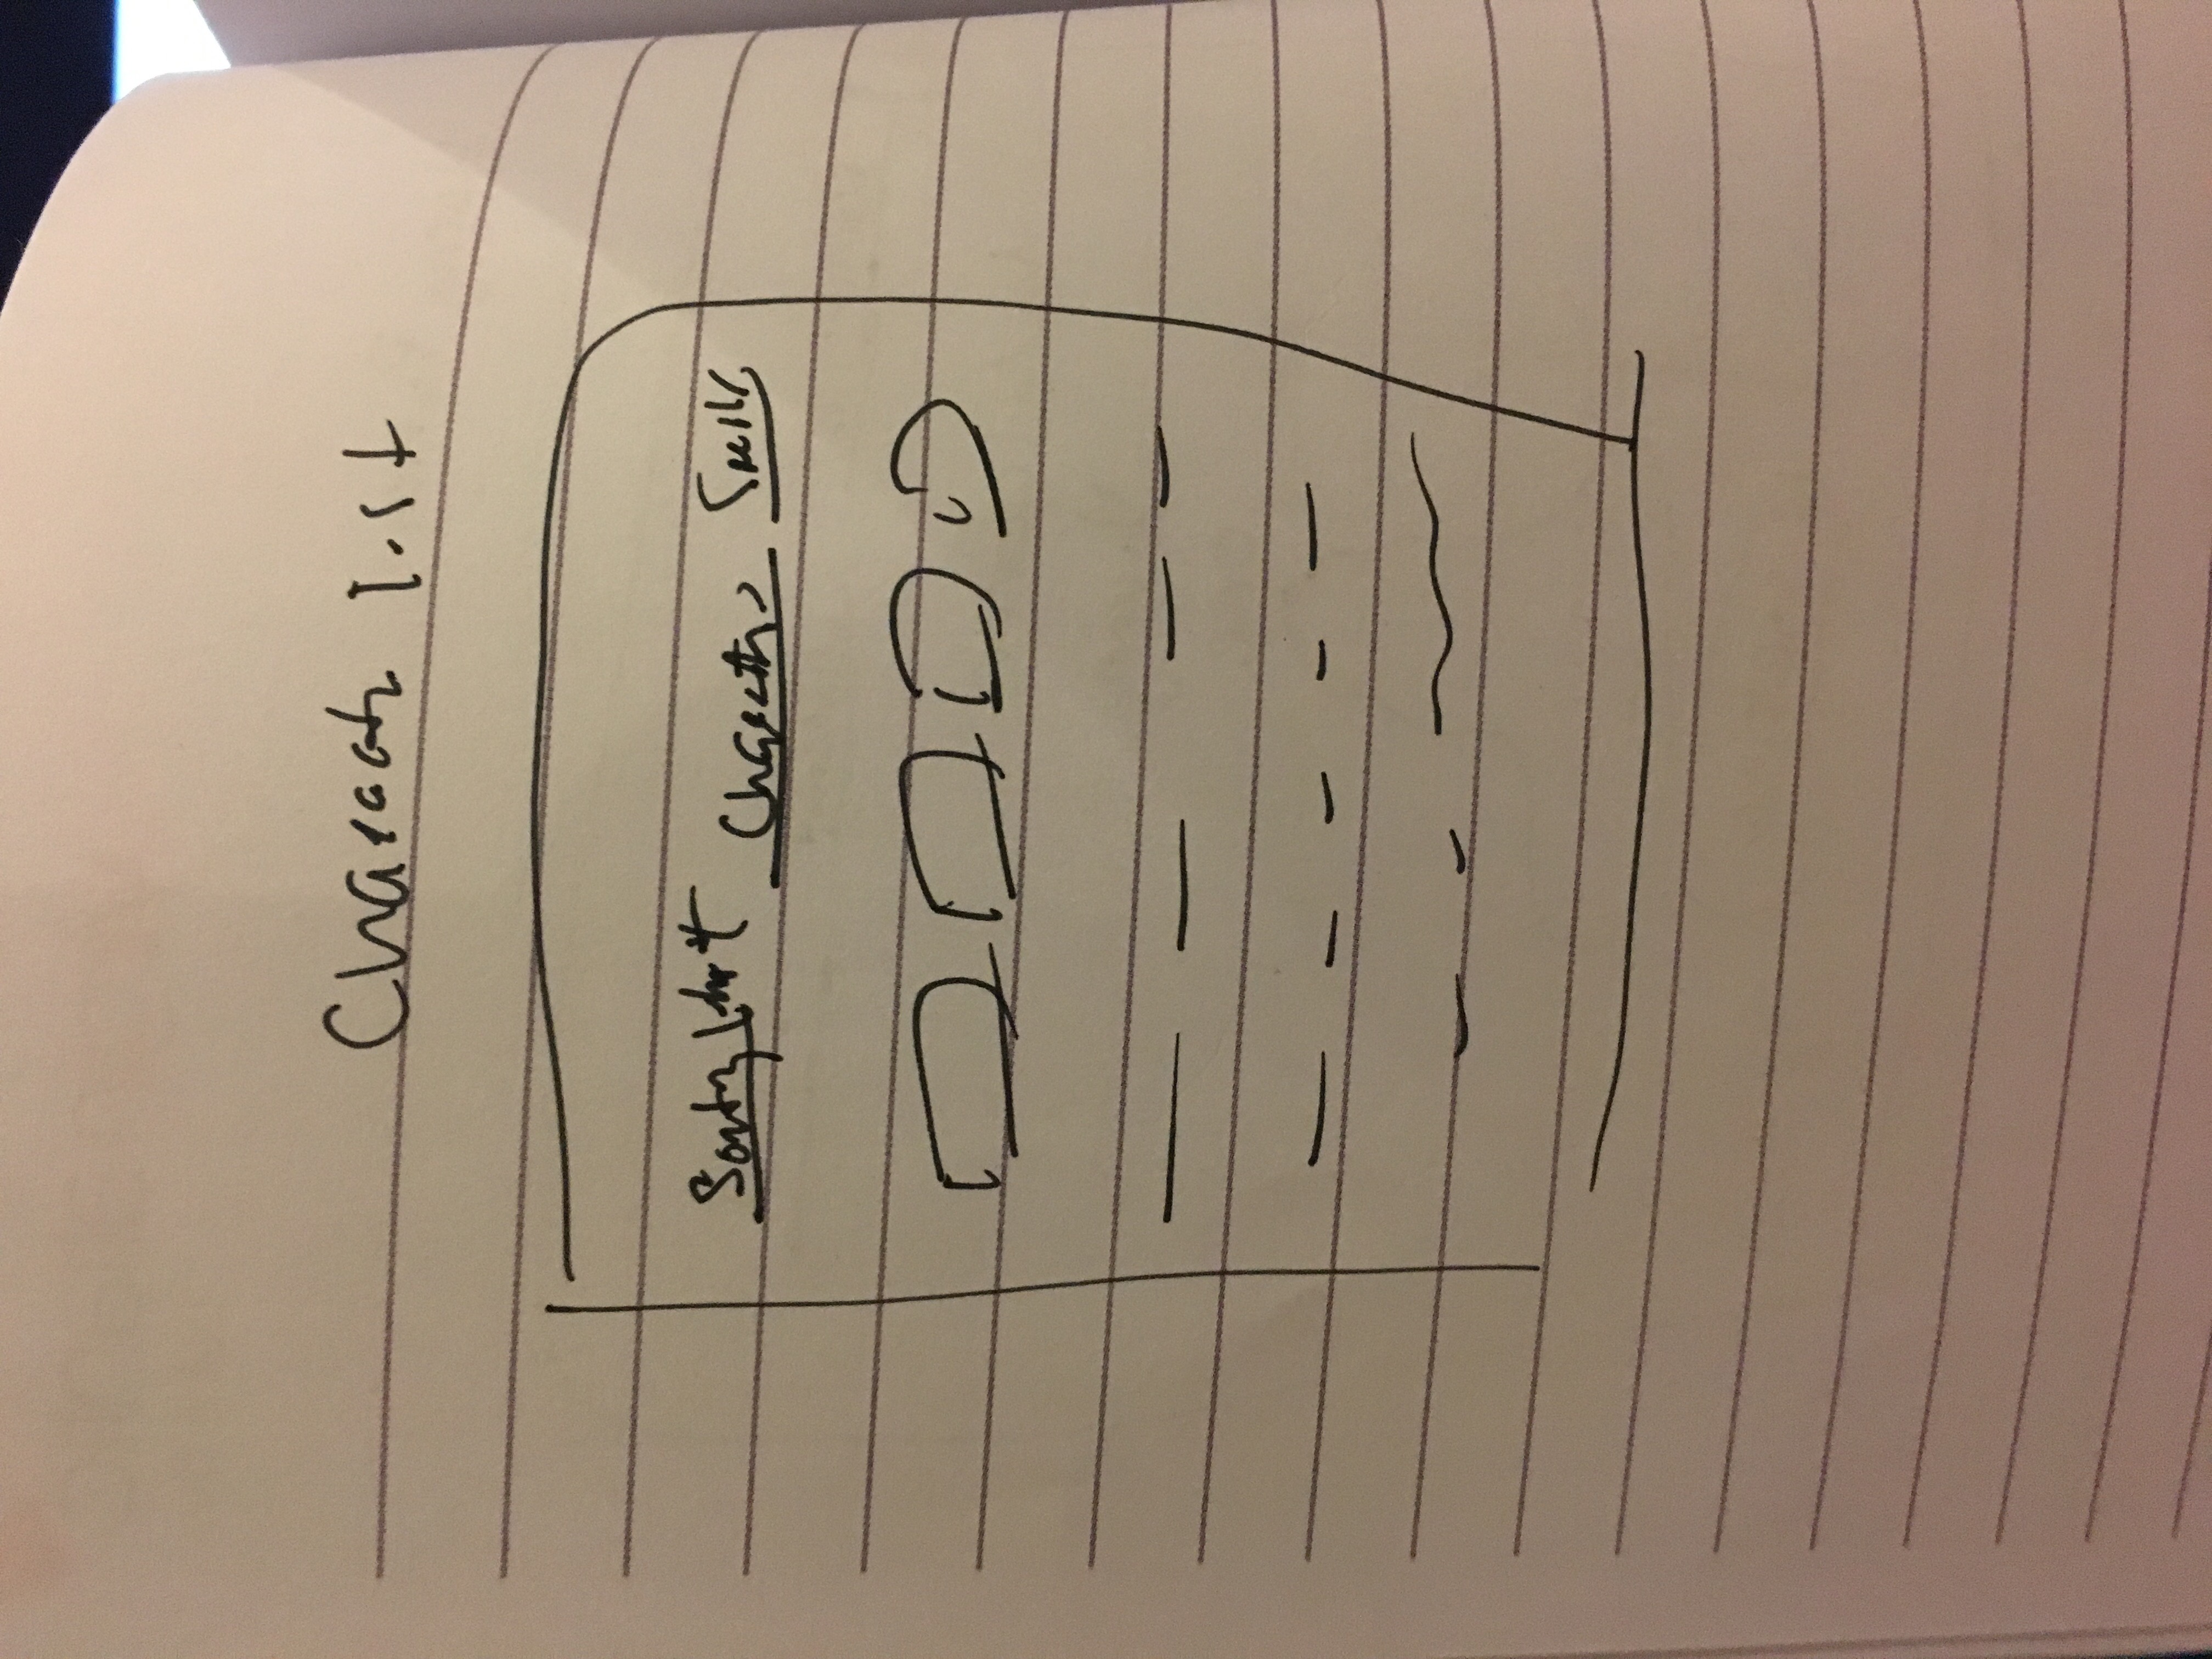 Character list
Sorting hat Characters Spells